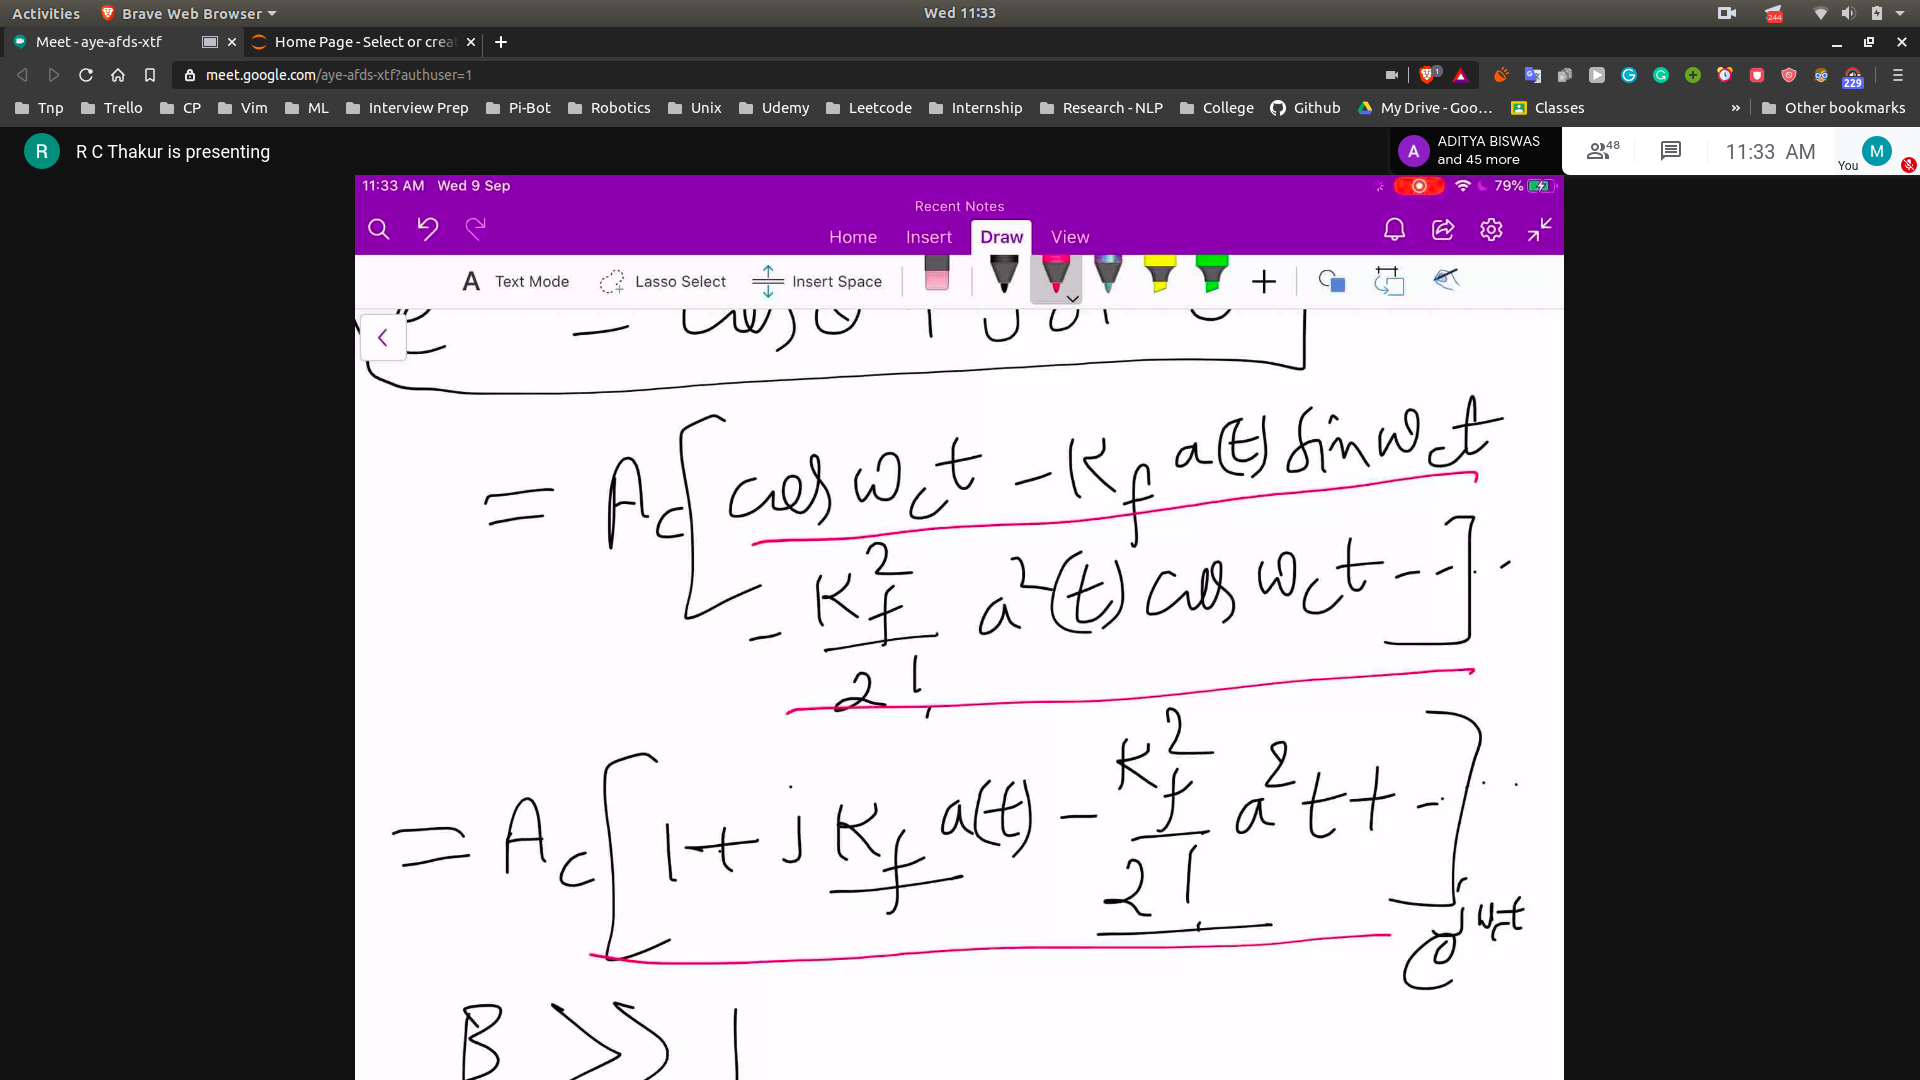 Activities Brave Web Browser Wed 11:33 244
Meet - aye-afds-xtf Home Page - Select or crea
meet.google.com/aye-afds-xtf?authuser=1 1 229
Tnp Trello CP Vim ML Interview Prep Pi-Bot Robotics Unix Udemy Leetcode Internship Research - NLP College Github My Drive - Goo... Classes » Other bookmarks
R R C Thakur is presenting A ADITYA BISWAS and 45 more 48 11:33 AM You M
11:33 AM Wed 9 Sep 79%
Recent Notes
Home Insert Draw View
A Text Mode Lasso Select Insert Space
= A_c [ cos ω_c t - K_f a(t) sin ω_c t
- K_f^2 / 2! a^2(t) cos ω_c t - - ] . .
= A_c [ 1 + j K_f a(t) - K_f^2 / 2! a^2 t + - . ] . . e^{j w_c t}
B >> 1